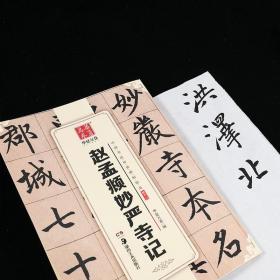 洪澤北
妙嚴寺本名
赵孟頫妙严寺记
郡城七十